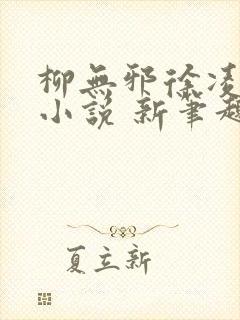 柳無邪徐凌
小說 新筆趣
夏立新